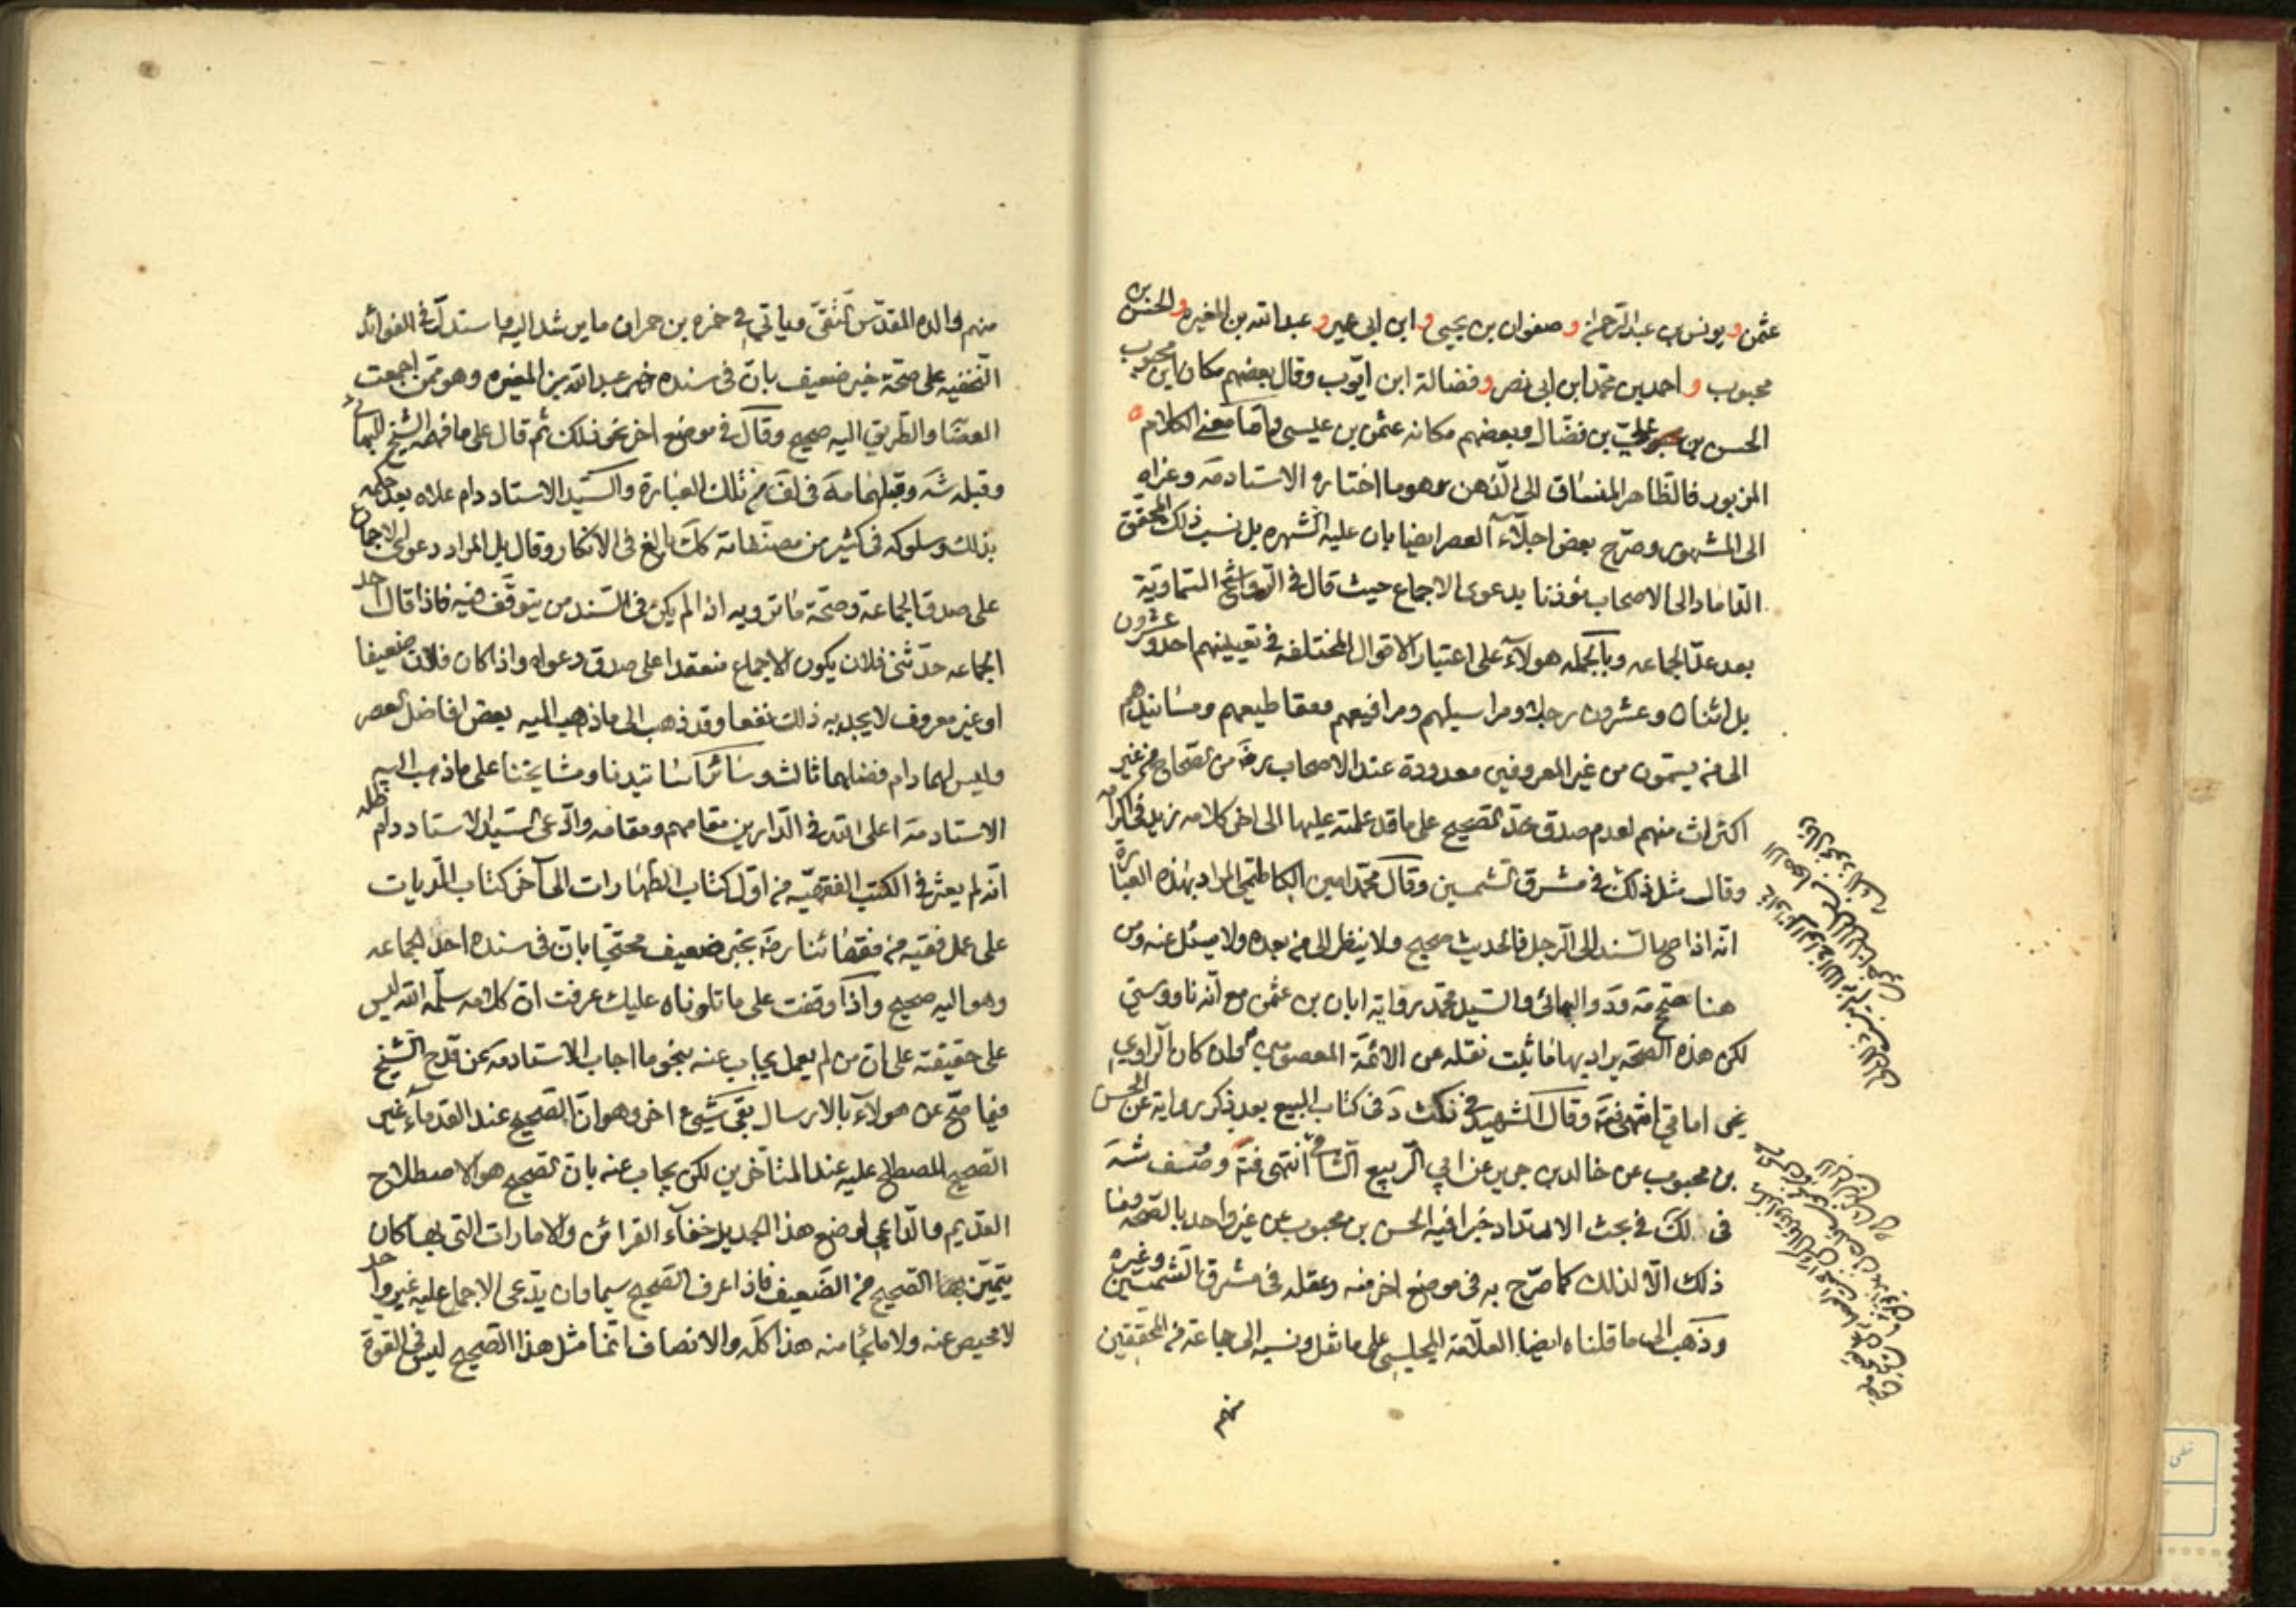 عثمن ويونس بن عبد الرحمن وصفوان بن يحيى وابن ابي عمير وعبد الله بن المغيره والحسن بن
محبوب واحمد بن محمد ابن ابى نصر وفضالة ابن ايّوب وقال بعضهم مكان ابن محبوب
الحسن بن علىّ بن فضّال وبعضهم مكانه عثمن بن عيسى وامّا معنى الكلام
المزبور فالظّاهر المنساق الى الذّهن وهو ما اختاره الاستاد مَه وعزاه
الى المشهور وصرّح بعض اجلّاء العصر ايضا بان عليه الشهره بل نسب ذلك المحقّق
الدّاماد الى الاصحاب مؤذنا بدعوى الاجماع حيث قال فى الرّواشح السّماويّة
بعد عدّ الجماعه وبالجمله هولاء على اعتبار الاقوال المختلفه فى تعيينهم احد وعشرون
بل اثنان وعشرون رجلا ومراسيلهم ومرافيعهم ومقاطيعهم ومسانيدهم
الى من يسمّون من غير المعروفين معدودة عند الاصحاب رضَ من الصّحاح من غير
اكتراث منهم لعدم صدق حدّ الصّحيح على ما قد علمته عليها الى اخر كلامه
وقال مثل ذلك فى مشرق الشمسين وقال محمّد امين الكاظمى المراد بهذه العبارة
انّه اذا صحّ السّند الى الرّجل فالحديث صحيح ولا ينظر الى من بعده ولا يسئل عنه ومن
هنا صحّح مَه ودَ والبهائى والسّيد محمّد رواية ابان بن عثمن مع انّه ناووسىّ
لكن هذه الصّحّه يراد بها ما ثبت نقله عن الائمّة المعصومين وان كان الرّاوى
غير امامىّ انتهى وقال الشهيد فى نكت دَ فى كتاب البيع بعد ذكر رواية عن الحسن
بن محبوب عن خالد بن جرير عن ابى الرّبيع الشّامى انتهى
فى لك فى بحث الارتداد خبرا فيه الحسن بن محبوب عن غير واحد بالصّحّه وما
ذلك الّا لذلك كما صرّح به فى موضع اخر منه ونقله فى مشرق الشّمسين وغيره
وذهب الى ما قلناه ايضا العلّامة المجلسى على ما نقل ونسبه الى جماعة من المحقّقين
منهم
منهم والده المقدّس التّقىّ وياتى فى حمزه بن حمران ما يرشد اليه استدلّ فى الفوائد
النّجفيه على صحّة خبر ضعيف بانّ فى سنده عبد الله بن المغيره وهو ممّن اجمعت
العصابة والطّريق اليه صحيح وقال فى موضع اخر نحو ذلك ثم قال على ما فهمه الشيخ البهائى
وقبله شَه وقبلهما مَه فى لَف من تلك العبارة والسّيد الاستاد دام علاه بعد حكمه
بذلك وسلوكه فى كثير من مصنّفاته كك بالغ فى الانكار وقال بل المراد دعوى الاجماع
على صدق الجماعة وصحّة ما ترويه اذا لم يكن فى السّند من يتوقّف فيه فاذا قال احد
الجماعه حدّثنى فلان يكون الاجماع منعقدا على صدق دعواه واذا كان فلان ضعيفا
او غير معروف لا يجديه ذلك نفعا وقد ذهب الى ما ذهب اليه بعض افاضل العصر
وليس لهما دام فضلهما ثالث وسائر اساتيدنا ومشايخنا على ما ذهب اليه
الاستاد مَه اعلى الله فى الدّارين مقامهم ومقامه وادّعى السّيد الاستاد دام ظله
انّه لم يعثر فى الكتب الفقهيّه من اوّل كتاب الطّهارات الى آخر كتاب الدّيات
على عمل فقيه من فقهائنا رضَ بخبر ضعيف محتجّا بانّ فى سنده احد الجماعه
وهو اليه صحيح واذا وقفت على ما تلوناه عليك عرفت انّ كلامه سلّمه الله ليس
على حقيقته على ان من لم يعمل يجاب عنه بنحو ما اجاب الاستاد مَه عن قدح الشيخ
فيما صحّ عن هولاء بالارسال بقى شىء اخر وهو انّ الصّحيح عند القدماء غير
الصّحيح المصطلح عليه عند المتاخّرين لكن يجاب عنه بانّ الصّحيح هو الاصطلاح
القديم والدّاعى لوضع هذا الجديد خفاء القرائن والامارات التى بها كان
يتميّز بها الصّحيح من الضّعيف فاذا عرف الصّحيح سيّما وان يدّعى الاجماع عليه غير واحد
لا محيص عنه ولا ملجأ منه هذا كلّه والانصاف انّ مثل هذا الصّحيح ليس فى القوّة